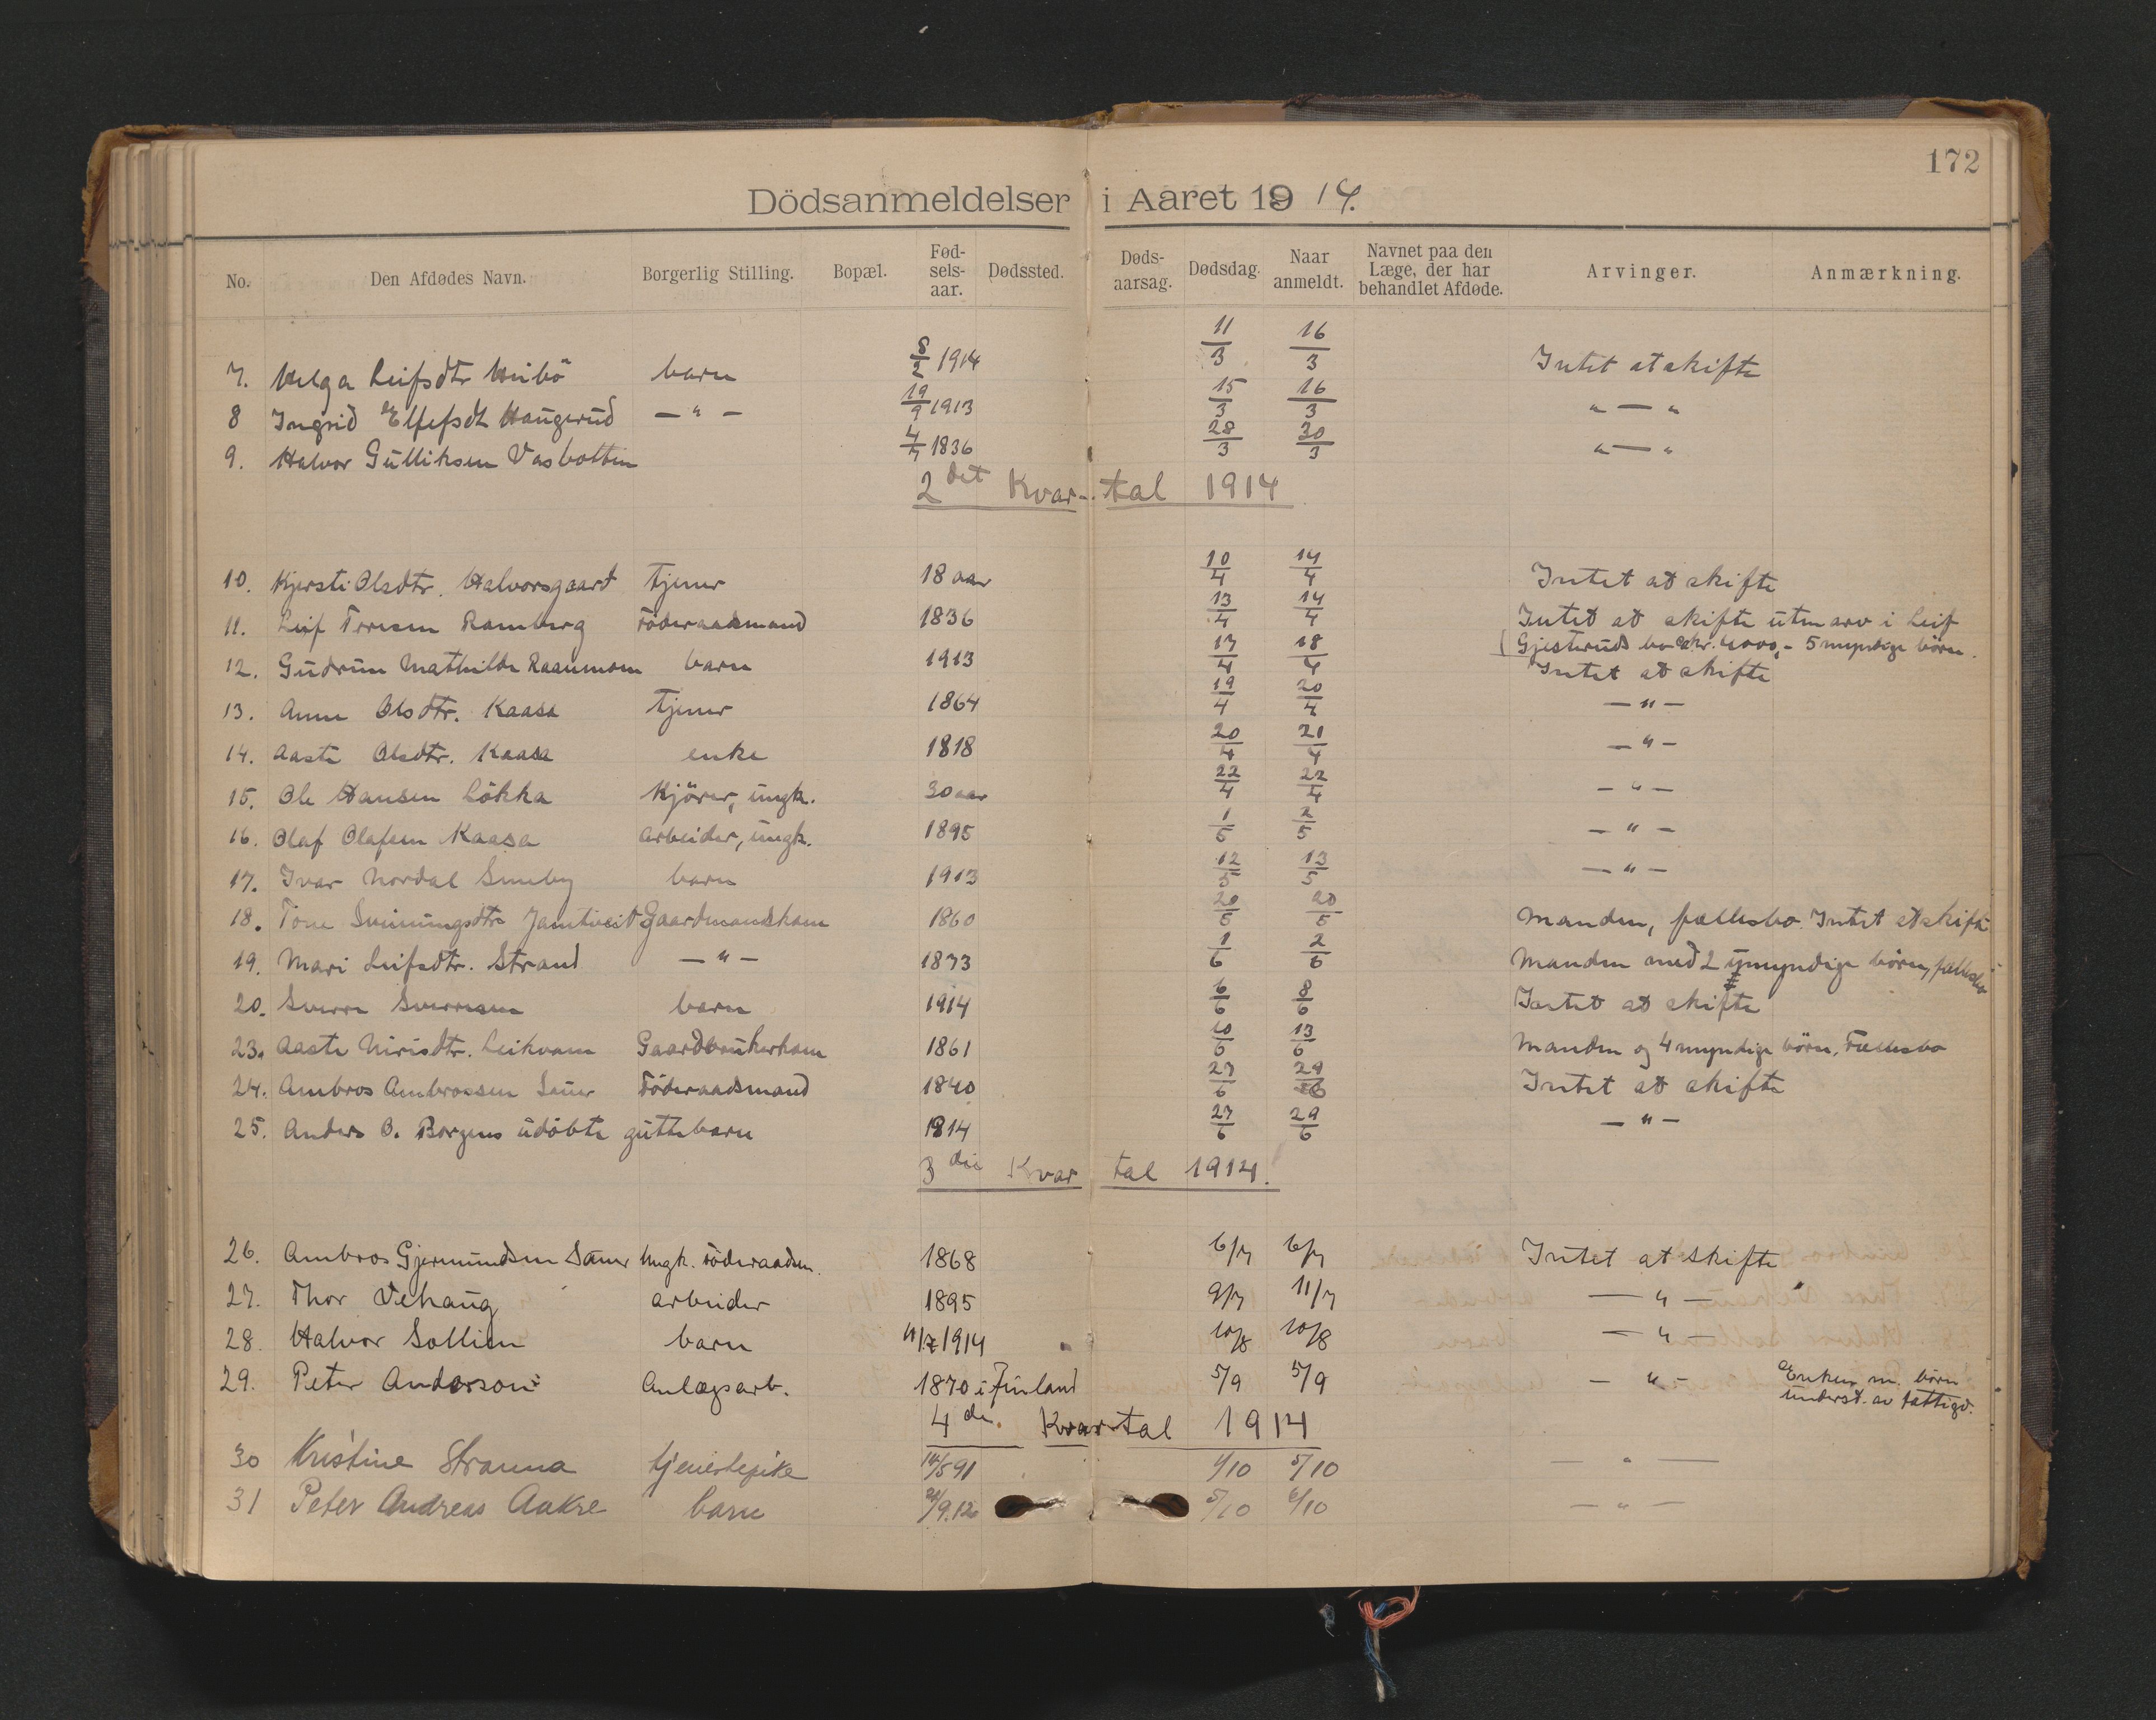 172
Dödsanmeldelser i Aaret 1914.
No. Den Afdødes Navn. Borgerlig Stilling. Bopæl. Fød-sels-aar. Dødssted. Døds-aarsag. Dødsdag. Naar anmeldt. Navnet paa den Læge, der har behandlet Afdøde. Arvinger. Anmærkning.
7. Helga Leifsdtr Heibö barn 8/2 1914 11/3 16/3 Intet at skifte
8 Ingrid Elfefsdt Haugerud — " — 19/9 1913 15/3 16/3 " — "
9. Halvor Gulliksen Vasbotten 4/7 1836 28/3 30/3 " — "
2det Kvar-tal 1914
10. Kjersti Olsdtr. Halvorsgaard tjener 18 aar 10/4 14/4 Intet at skifte
11. Leif Ramberg Föderaadsmand 1836 13/4 14/4 Intet at skifte uten arv i Leif
Gjesteruds bo kr. 4000,- 5 myndige börn.
12. Gudrun Mathilde Raanmoen barn 1913 17/4 18/4 Intet at skifte
13. Anne Olsdtr. Kaasa tjener 1864 19/4 20/4 — " —
14. Aaste Olsdtr. Kaasa enke 1818 20/4 21/4 — " —
15. Ole Hansen Lökka Kjörer, ungk. 30 aar 22/4 22/4 — " —
16. Olaf Olafsen Kaasa arbeider, ungk. 1895 1/5 2/5 — " —
17. Ivar Nordal Smeby barn 1913 12/5 13/5 — " —
18. Tone Sveinungsdtr Jamtveit Gaardmandskone 1860 20/5 20/5 Manden, fællesbo. Intet at skifte
19. Mari Leifsdtr. Strand — " — 1873 1/6 2/6 Manden med 2 umyndige börn, fællesbo
20. Sverre Sverresen barn 1914 6/6 8/6 Intet at skifte
23. Aaste Nirisdtr. Leikvam Gaardbrukerkone 1861 10/6 13/6 Manden og 4 myndige börn. Fællesbo
24. Ambros Ambrossen Sauer Föderaadsmand 1840 27/6 29/6 Intet at skifte
25. Anders O. Borgens udöbte guttebarn 1914 27/6 29/6 — " —
3die Kvar tal 1914.
26. Ambros Gjermundsen Sauer Ungk. Föderaadsm. 1868 6/7 6/7 Intet at skifte
27. Thor Vehaug arbeider 1895 9/7 11/7 — " —
28. Halvor Sollien barn 1914 10/8 10/8 — " —
29. Peter Anderson Anlægsarb. 1870 i Finland 5/9 5/9 — " — Enken m. börn
underst. av fattigv.
4de. Kvartal 1914
30 Kristine Stranna tjenestepike 14/5 91 1/10 5/10 — " —
31 Peter Andreas Aakre barn 21/9.12 5/10 6/10 — " —